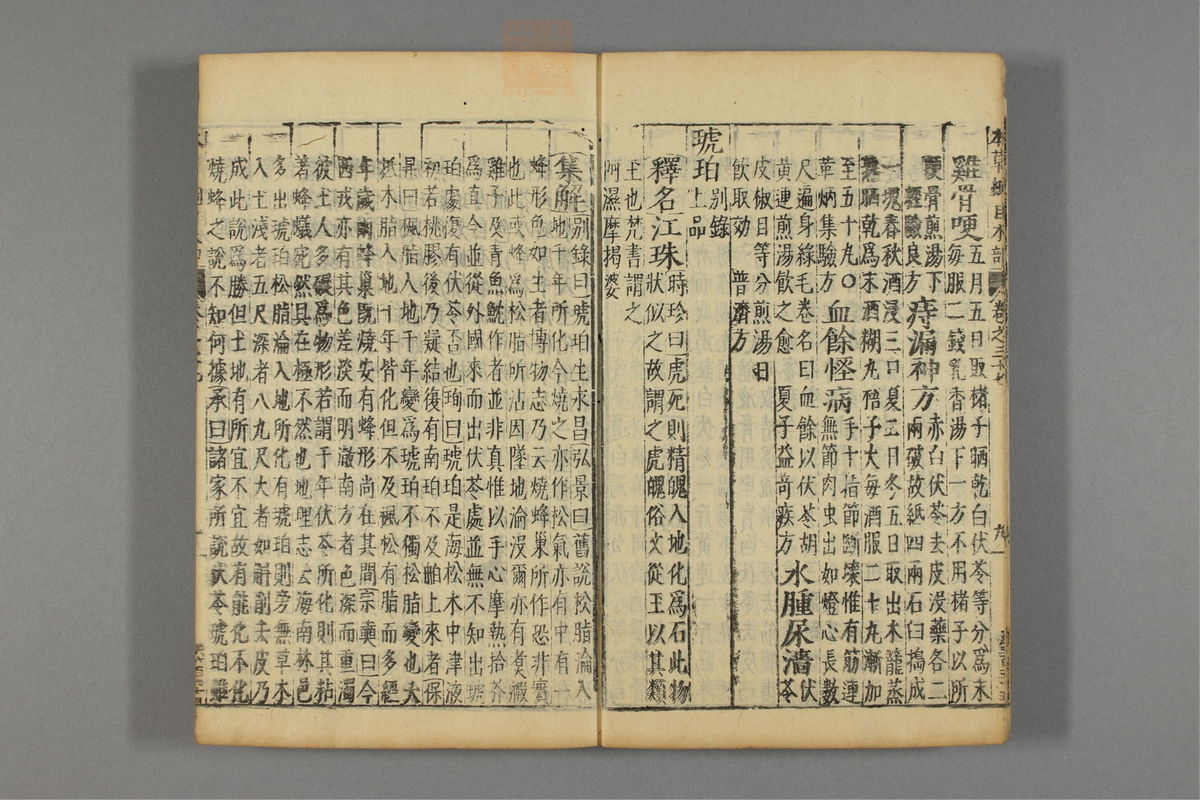 雞骨哽五月五日取楮子晒乾白伏苓等分爲末
每服二錢乳香湯下一方不用楮子以所
哽骨煎湯下
經驗良方 痔漏神方赤白伏苓去皮浸藥各二
兩破故紙四兩石臼搗成
一塊春秋酒浸三日夏二日冬五日取出木籠蒸
熟晒乾爲末酒糊丸梧子大每酒服二十丸漸加
至五十丸〇血餘怪病手十指節斷壞惟有筋連
無節肉虫出如燈心長數
尺遍身綠毛卷名曰血餘以伏苓胡
黃連煎湯飲之愈 夏子益奇疾方 水腫尿濇伏苓
皮椒目等分煎湯日
飲取効 普濟方
琥珀別錄
上品
釋名江珠時珍曰虎死則精魄入地化爲石此物
狀似之故謂之虎魄俗文從玉以其類
玉也梵書謂之
阿濕摩揭婆
集解別錄曰琥珀生永昌弘景曰舊說松脂淪入
地千年所化今燒之亦作松氣亦有中有一
蜂形色如生者博物志乃云燒蜂巢所作恐非實
也此或蜂爲松脂所沾因墜地淪沒爾亦有煮毈
雞子及青魚鮵作者並非真惟以手心摩熱拾芥
爲真今並從外國來而出伏苓處並無不知出琥
珀處復有伏苓否也珣曰琥珀是海松木中津液
初若桃膠後乃凝結復有南珀不及舶上來者保
昇曰楓脂入地千年變爲琥珀不獨松脂變也大
抵木脂入地千年皆化但不及楓松有脂而多經
年歲爾蜂巢既燒安有蜂形尚在其間宗奭曰今
西戎亦有其色差淡而明澈南方者色深而重濁
彼土人多碾爲物形若謂千年伏苓所化則其粘
着蜂蟻宛然具在極不然也地理志云海南林邑
多出琥珀松脂淪入地所化有琥珀則旁無草木
入土淺者五尺深者八九尺大者如斛削去皮乃
成此說爲勝但土地有所宜不宜故有能化不化
燒蜂之說不知何據承曰諸家所說伏苓琥珀雖